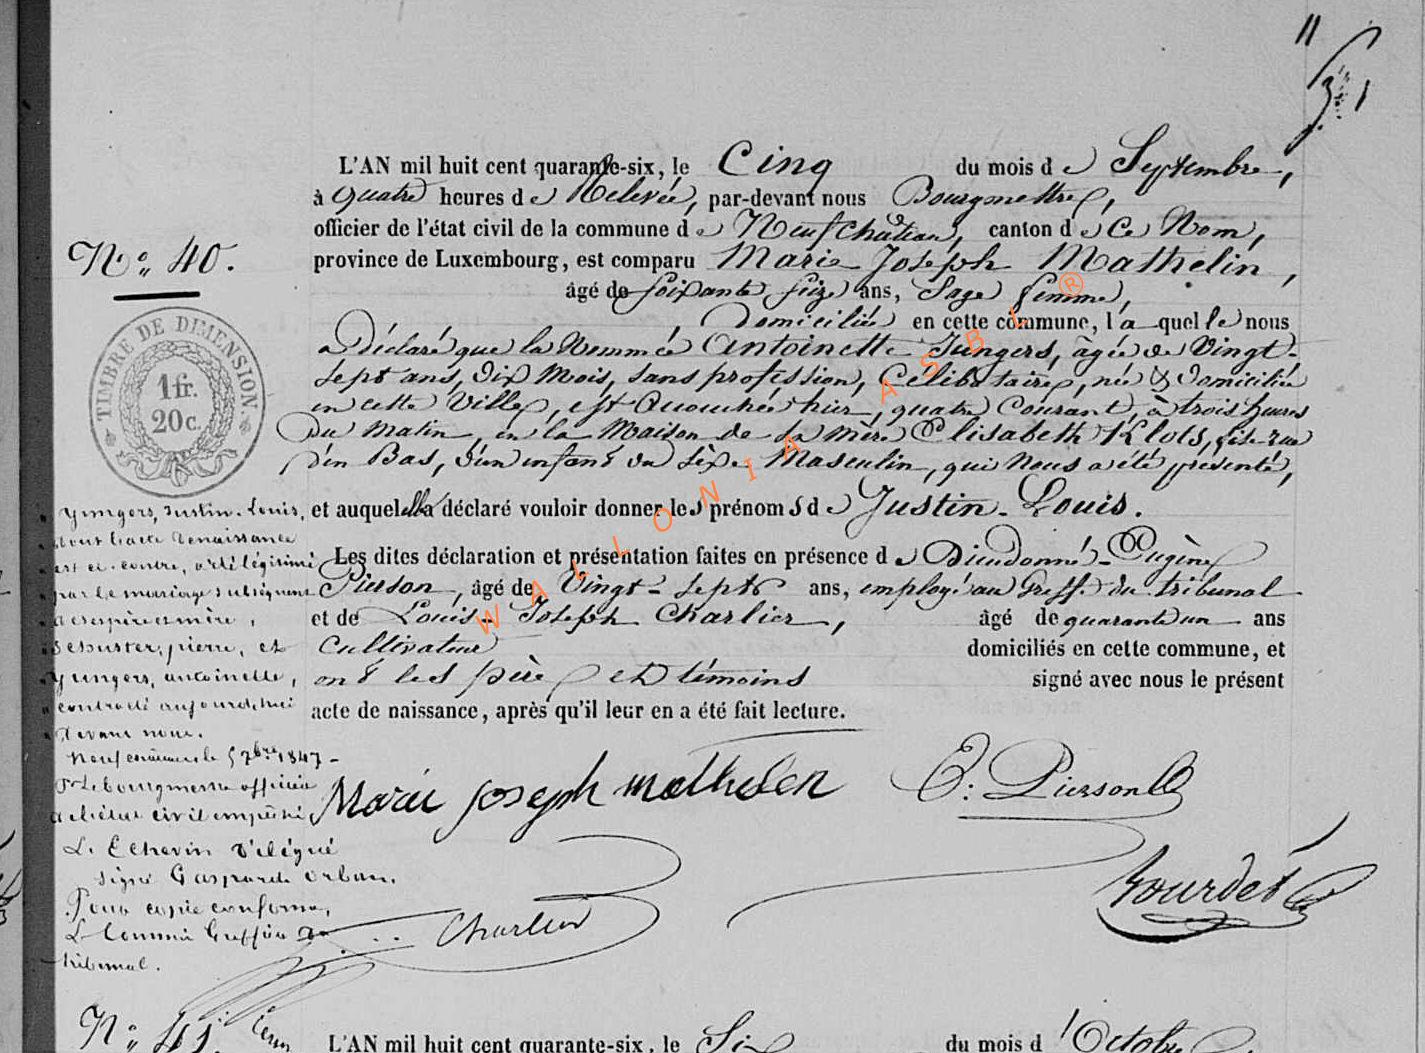 N° 40.
TIMBRE DE DIMENSION.
1 fr.
20 c.
L'AN mil huit cent quarante-six, le Cinq du mois de Septembre,
à quatre heures de Relevée, par-devant nous Bourgmestre,
officier de l'état civil de la commune de Neufchâteau, canton de Ce Nom,
province de Luxembourg, est comparu Marie Joseph Mathelin,
âgé de soixante seize ans, Sage femme,
Domiciliée en cette commune, laquelle nous
a déclaré que la Nommée Antoinette Jungers, âgée de Vingt-
sept ans, dix Mois, sans profession, Célibataire, née & domiciliée
en cette Ville, est accouchée hier, quatre Courant, à trois heures
Du Matin, en la Maison de sa Mère Elisabeth Klots, sise rue
d'en Bas, d'un enfant du sexe Masculin, qui Nous a été présenté,
et auquel elle a déclaré vouloir donner les prénoms de Justin-Louis.
Les dites déclaration et présentation faites en présence de Dieudonné-Eugène
Pierson, âgé de Vingt-sept ans, employé au Greffe du tribunal
et de Louis-Joseph Charlier, âgé de quarante un ans
Cultivateur domiciliés en cette commune, et
ont les père et témoins signé avec nous le présent
acte de naissance, après qu'il leur en a été fait lecture.
Marie joseph mathelen E: Pierson
Charlier Bourdet
Yungers, Justin-Louis,
dont l'acte de naissance
est ci-contre, a été légitimé
par le mariage subséquent
de ses père et mère,
Schuster, pierre, et
Yungers, antoinette,
contracté aujourd'hui
devant nous.
Neufchâteau le 5 7bre 1847-
Pr Le bourgmestre officier
de l'état civil empêché,
L'Echevin délégué
signé Gaspard Orban.
Pour copie conforme,
Le Commis Greffier du
tribunal.
WALLONIA ASBL ®
N° 41.
L'AN mil huit cent quarante-six, le Six du mois d'Octobre